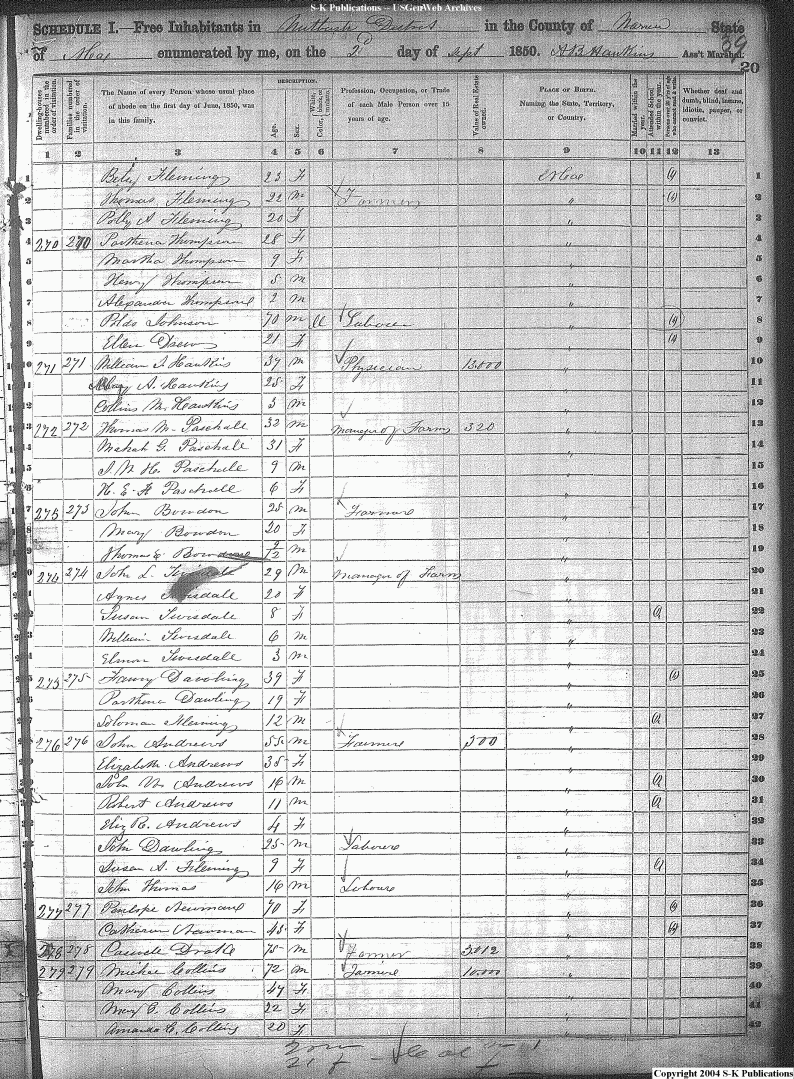 S-K Publications -- USGenWeb Archives
SCHEDULE I.—Free Inhabitants in Nutbush District in the County of Warren State
of enumerated by me, on the 2d day of Sept 1850. A B Hawkins Ass't Marshal.
39
20
Dwelling-houses numbered in the order of visitation.
Families numbered in the order of visitation.
The Name of every Person whose usual place of abode on the first day of June, 1850, was in this family.
DESCRIPTION.
Age.
Sex.
White, black, or mulatto.
Color,
Profession, Occupation, or Trade of each Male Person over 15 years of age.
Value of Real Estate owned.
PLACE OF BIRTH. Naming the State, Territory, or Country.
Married within the year.
Attended School within the year.
Persons over 20 y'rs of age who cannot read & write.
Whether deaf and dumb, blind, insane, idiotic, pauper, or convict.
1 2 3 4 5 6 7 8 9 10 11 12 13
1 Betsy Fleming 23 F 1
2 Thomas Fleming 22 m Farmer " 2
3 Polly A Fleming 20 F " 3
4 270 270 Parthena Thompson 28 F " 4
5 Martha Thompson 9 F " 5
6 Henry Thompson 5 m " 6
7 Alexander Thompson 2 m " 7
8 Johnson 70 m Laborer " 8
9 Ellen Drew 21 F " 9
10 271 271 William J Hawkins 37 m Physician 13.000 " 10
11 Mary A. Hawkins 25 F " 11
12 Collins M. Hawkins 3 m " 12
13 272 272 Thomas M. Paschall 32 m manager of Farm 320 " 13
14 G. Paschall 31 F " 14
15 H. Paschall 9 m " 15
16 H. E. Paschall 6 F " 16
17 273 273 John Bowdon 25 m Farmer " 17
18 Mary Bowdon 20 F " 18
19 Thomas E. Bowdon 2/12 m " 19
20 274 274 John L. Tivisdale 29 m Manager of Farm " 20
Agnes Tivisdale 20 F " 21
22 Susan Tivisdale 8 F " 22
Willie Tivisdale 6 m " 23
Tivisdale 3 m " 24
25 275 275 39 F " 25
Parthena Dawling 19 F " 26
27 Soloman Fleming 12 m " 27
28 276 276 John Andrews 55 m Farmer 300 " 28
Elizabeth Andrews 35 F " 29
John W. Andrews 16 m " 30
Robert Andrews 11 m " 31
Eliz R. Andrews 4 F " 32
John Dawling 25 m Laborer " 33
Susan A. Fleming 9 F " 34
John Thomas 16 m " 35
277 277 Penelope Newman 70 F " 36
Catharine Newman 45 F " 37
278 278 Drake 75 m Farmer 3,012 " 38
279 279 Michael Collins 72 m Farmer 10.000 " 39
Mary Collins 47 F " 40
Mary C. Collins 22 F " 41
Amanda C. Collins 20 F " 42
Copyright 2004 S-K Publications